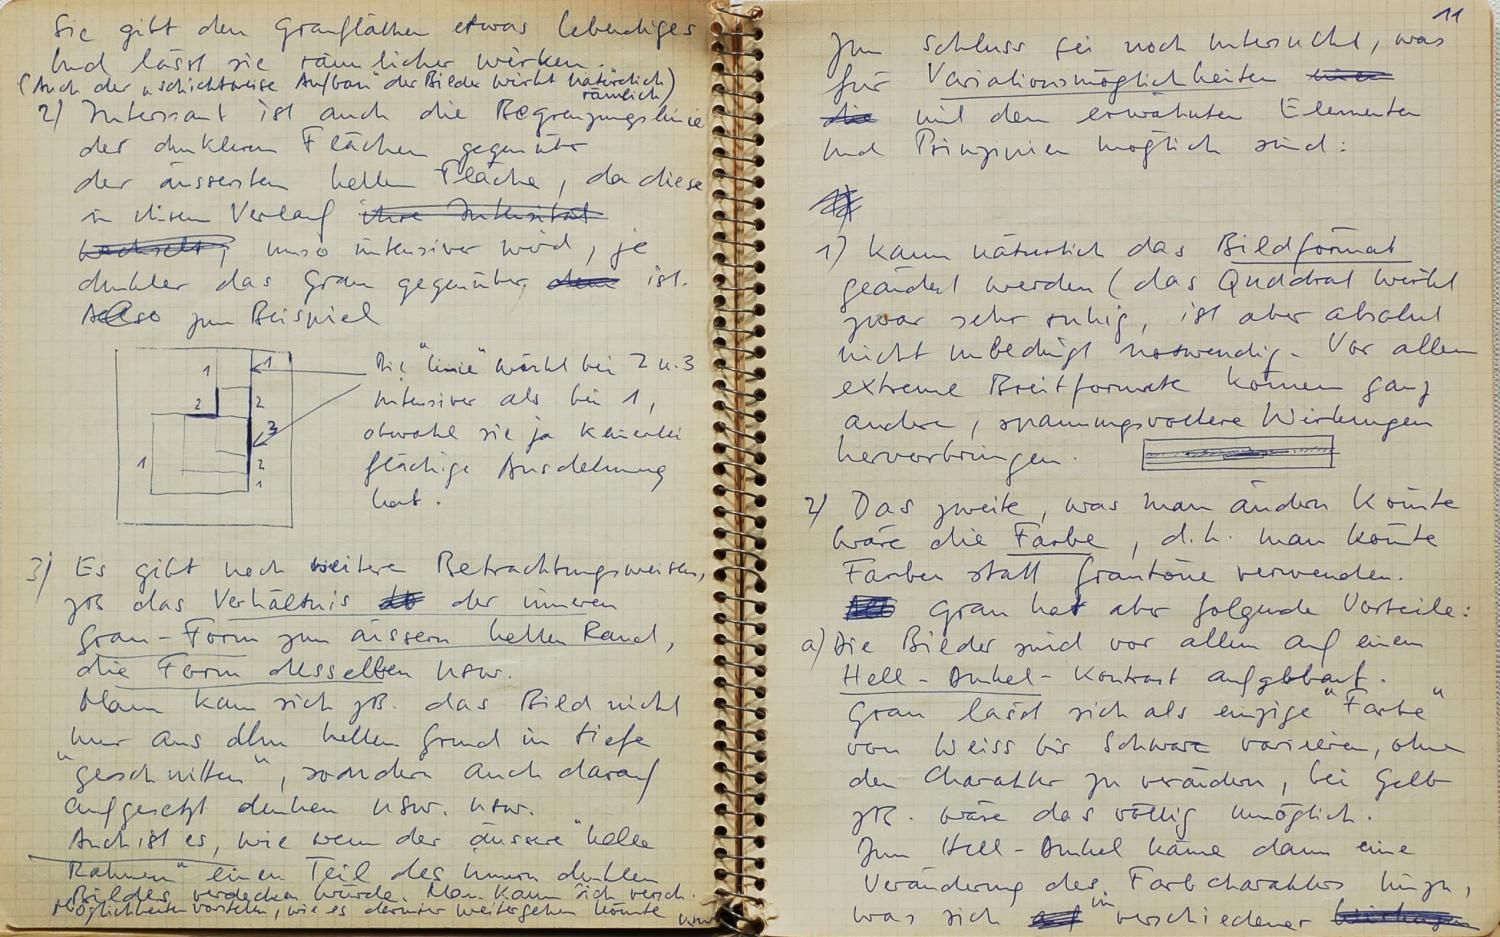 Sie gibt den Grauflächen etwas lebendiges
und lässt sie räumlicher wirken.
(Auch der "schichtweise Aufbau" der Bilder wirkt natürlich
räumlich)
2) Interssant ist auch die Begrenzungslinie
der dunkleren Flächen gegenüber
der äussersten hellen Fläche, da diese
in ihrem Verlauf ihre Intensität
wechselt, umso intensiver wird, je
dunkler das Grau gegenüber ist.
Also zum Beispiel
1 1
2 2
3
1 2
1
Die "Linie" wirkt bei 2 u. 3
intensiver als bei 1,
obwohl sie ja keinerlei
flächige Ausdehnung
hat.
3) Es gibt noch weitere Betrachtungsweisen,
zB das Verhältnis der inneren
Grau-Form zum äussern hellen Rand,
die Form desselben usw.
Man kann sich zB. das Bild nicht
nur aus dem hellen Grund in tiefe
"geschnitten", sondern auch darauf
aufgesetzt denken usw. usw.
Auch ist es, wie wenn der äussere "helle
Rahmen" einen Teil des innern dunklen
Bildes verdecken würde. Man kann sich versch.
Möglichkeiten vorstellen, wie es darunter weitergehen könnte usw.
11
Zum Schluss sei noch untersucht, was
für Variationsmöglichkeiten
die mit den erwähnten Elementen
und Prinzipien möglich sind:
1) Kann natürlich das Bildformat
geändert werden (das Quadrat wirkt
zwar sehr ruhig, ist aber absolut
nicht unbedingt notwendig. Vor allem
extreme Breitformate können ganz
andere, spannungsvollere Wirkungen
hervorbringen.
2) Das zweite, was man ändern könnte
wäre die Farbe, d.h. man könnte
Farben statt Grautöne verwenden.
Grau hat aber folgende Vorteile:
a) Die Bilder sind vor allem auf einem
Hell-Dunkel-Kontrast aufgebaut.
Grau lässt sich als einzige "Farbe"
von Weiss bis Schwarz variieren, ohne
den Charakter zu verändern, bei Gelb
zB. wäre das völlig unmöglich.
Zum Hell-Dunkel käme dann eine
Veränderung des Farbcharakters hinzu,
was sich in verschiedener